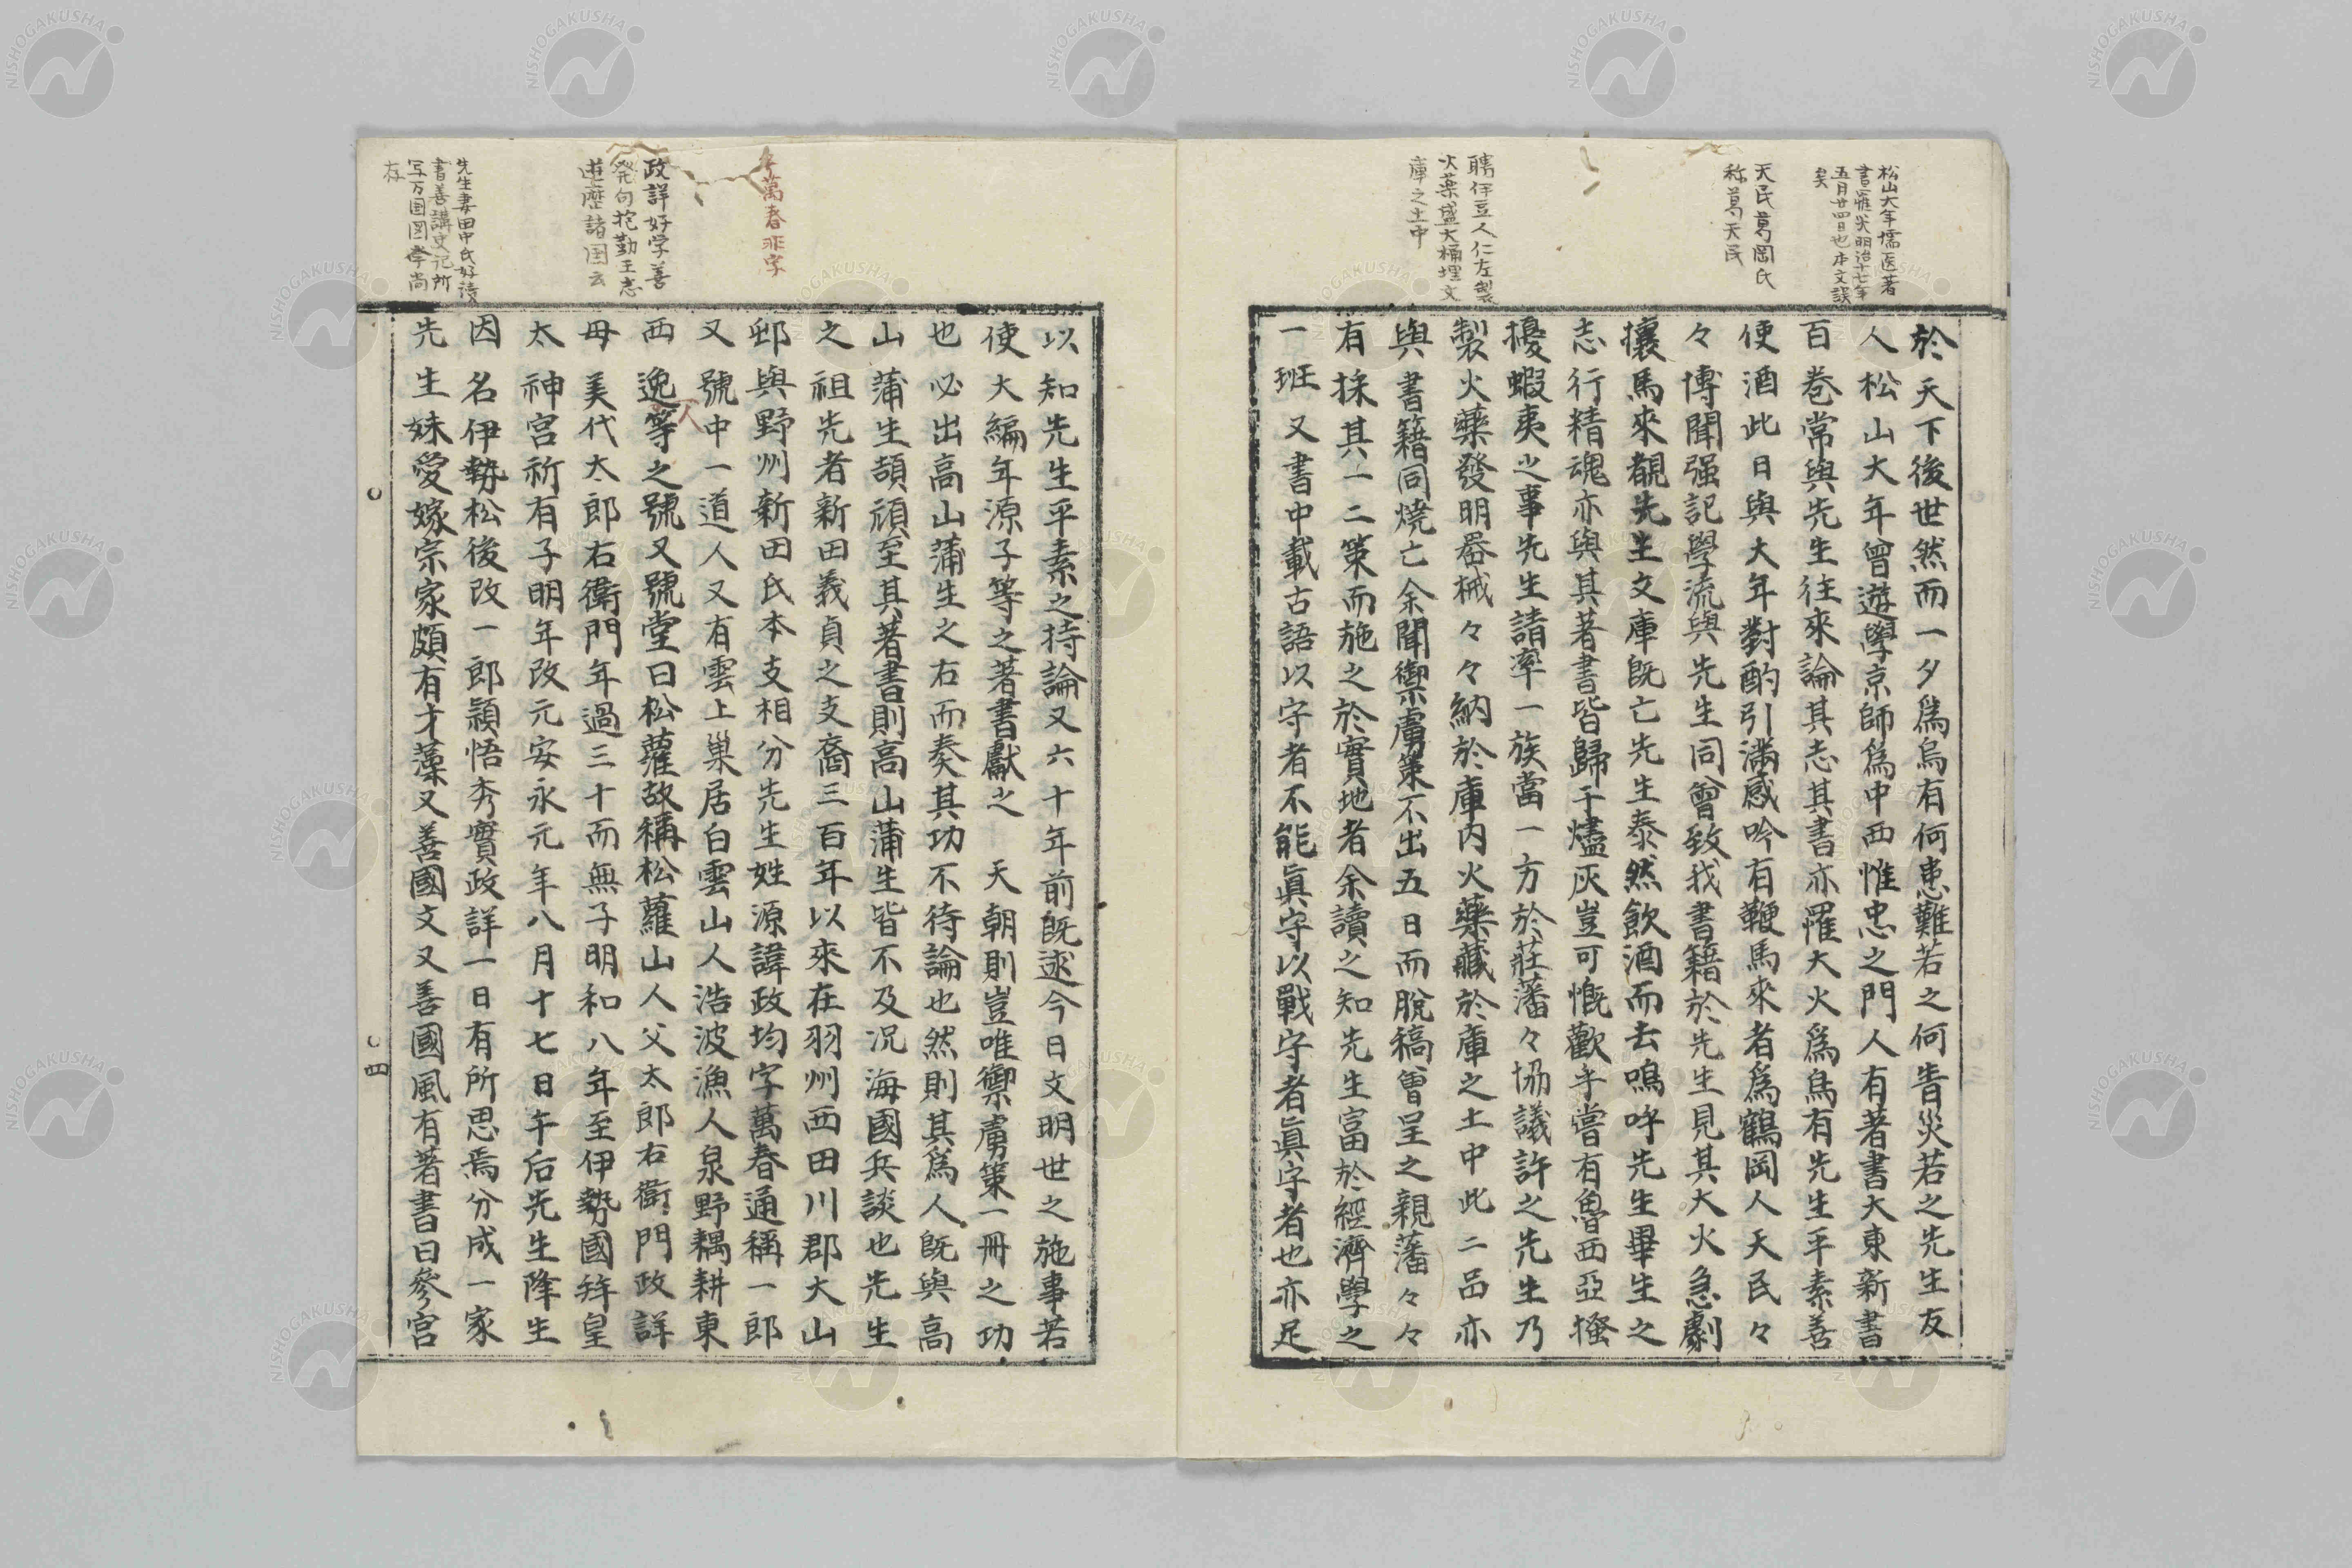 松山大年儒医著
書罹災明治十七年
五月廿四日也本文誤
矣
天民葛岡氏
称葛天民
聘伊豆人仁左製
火薬盛大桶埋文
庫之土中
於天下後世然而一夕爲烏有何患難若之何眚災若之先生友
人松山大年曾遊學京師爲中西惟忠之門人有著書大東新書
百巻常與先生往來論其志其書亦罹大火爲烏有先生平素善
使酒此日與大年對酌引滿感吟有鞭馬來者爲鶴岡人天民々
々博聞强記學流與先生同曾致我書籍於先生見其大火急劇
攘馬來覩先生文庫既亡先生泰然飲酒而去鳴呼先生畢生之
志行精魂亦與其著書皆歸于燼灰豈可慨歡乎嘗有魯西亞搔
擾蝦夷之事先生請率一族當一方於莊藩々協議許之先生乃
製火藥發明噐械々々納於庫内火藥藏於庫之土中此二品亦
與書籍同燒亡余聞禦虜策不出五日而脱稿曾呈之親藩々々
有採其一二策而施之於實地者余讀之知先生富於經濟學之
一班又書中載古語以守者不能眞守以戰守者眞守者也亦足
名萬春非字
政詳好学善
発句抱勤王志
遊歴諸国云
先生妻田中氏好読
書善講史記所
写万国図学尚
存
以知先生平素之持論又六十年前既逑今日文明世之施事若
使大編年源子等之著書獻之　天朝則豈唯禦虜策一冊之功
也必出高山蒲生之右而奏其功不待論也然則其爲人既與高
山蒲生頡頏至其著書則高山蒲生皆不及况海國兵談也先生
之祖先者新田義貞之支裔三百年以來在羽州西田川郡大山
邨與野州新田氏本支相分先生姓源諱政均字萬春通稱一郎
又號中一道人又有雲上巢居白雲山人浩波漁人泉野耦耕東
西逸人等之號又號堂曰松蘿故稱松蘿山人父太郎右衞門政詳
母美代太郎右衞門年過三十而無子明和八年至伊勢國拜皇
太神宮祈有子明年改元安永元年八月十七日午后先生降生
因名伊勢松後改一郎穎悟秀實政詳一日有所思焉分成一家
先生妹愛嫁宗家頗有才藻又善國文又善國風有著書曰參宮
四